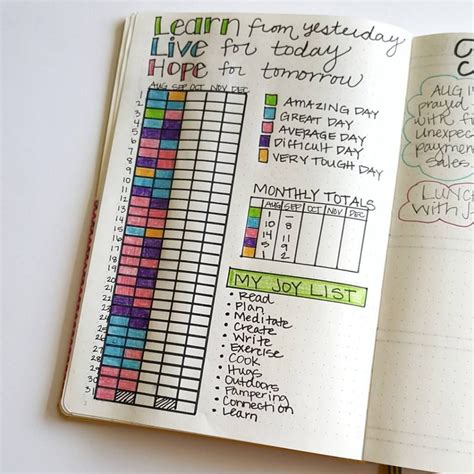 Learn from yesterday
Live for today
Hope for tomorrow
AUG SEP OCT NOV DEC
AMAZING DAY
GREAT DAY
AVERAGE DAY
DIFFICULT DAY
VERY TOUGH DAY
MONTHLY TOTALS
AUG SEP OCT NOV DEC
1 –
10 8
14 11
5 9
1 2
MY JOY LIST
• Read
• Plan
• Meditate
• Create
• Write
• Exercise
• Cook
• Hugs
• Outdoors
• Pampering
• Connection
• Learn
AUG 1
prayed
with fi
unexpec
paymen
sales.
LUNC
with